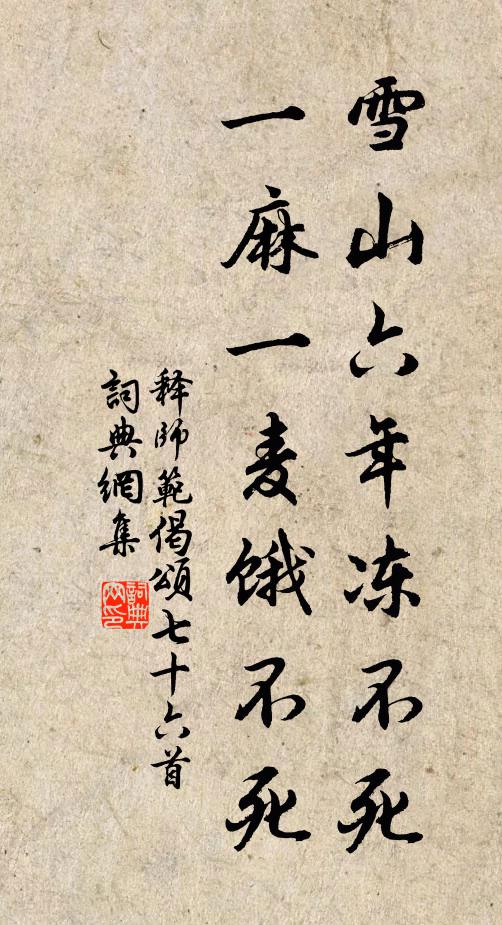 雪山六年冻不死
一麻一麦饿不死
释师範偈颂七十六首
詞典網集
詞典网印